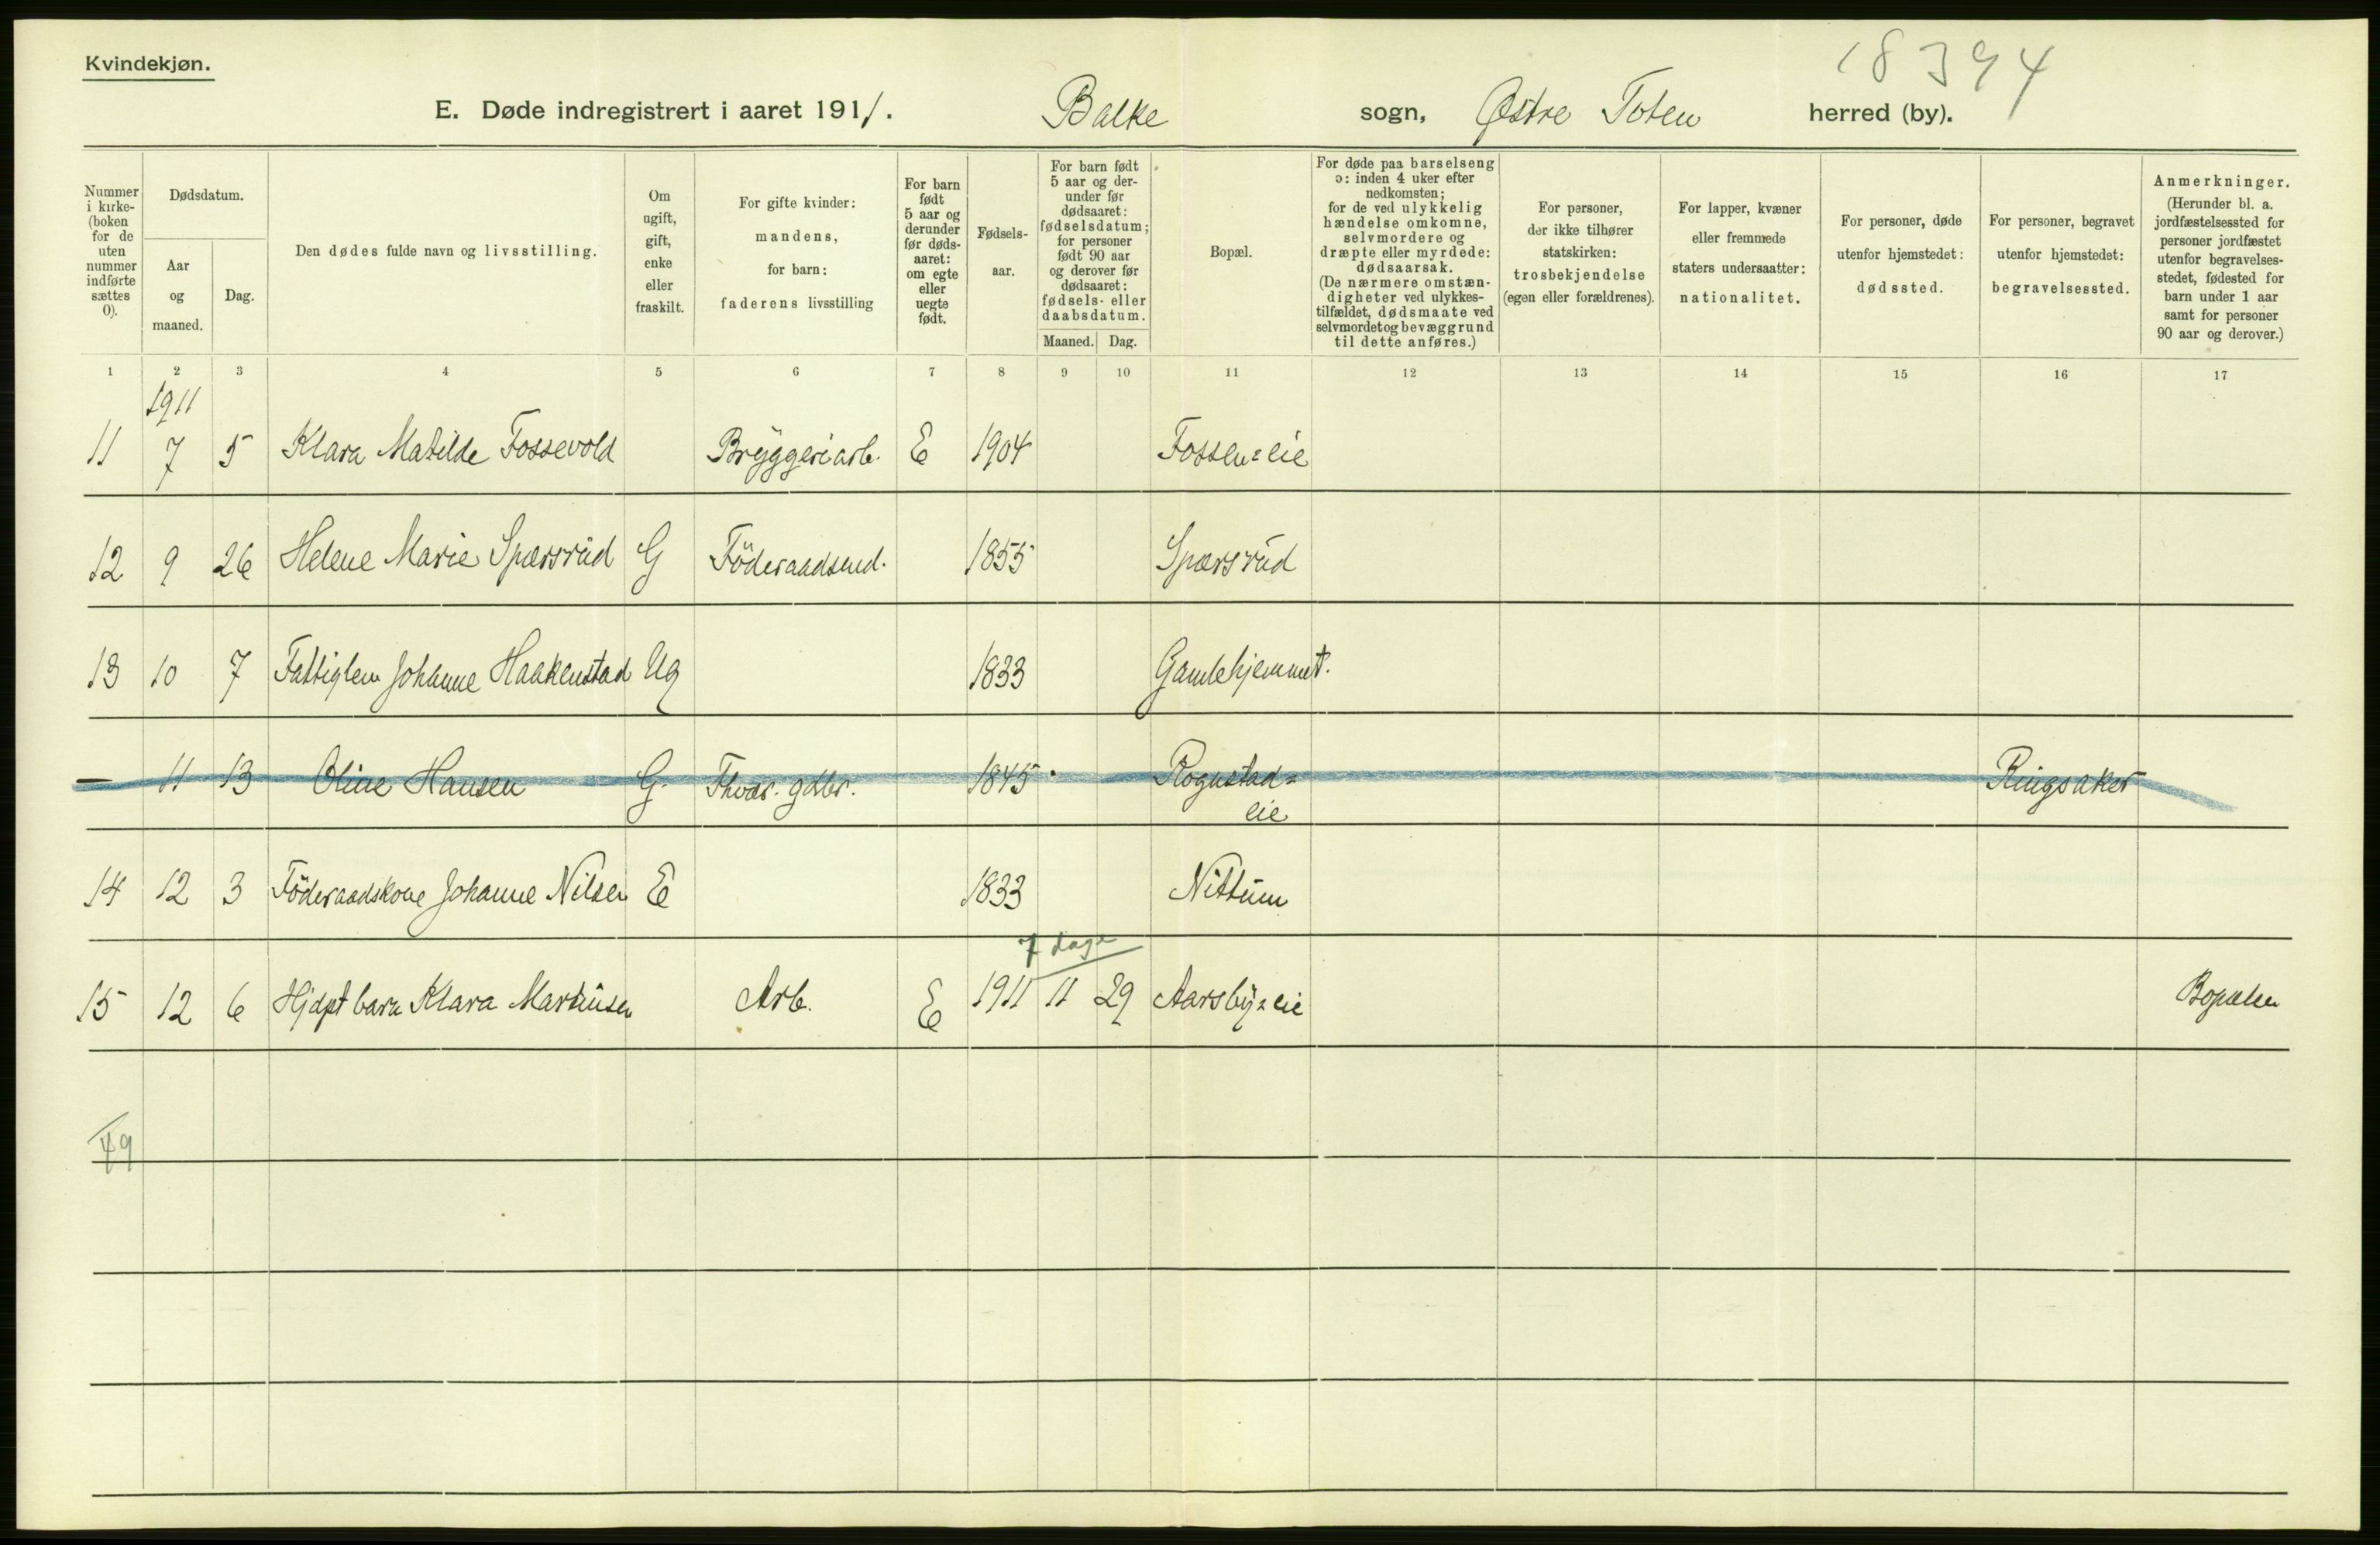 Kvindekjøn.
18394
E. Døde indregistrert i aaret 1911. Balke sogn, Østre Toten herred (by).
Nummer i kirke- (boken for de uten nummer indførte sættes 0).
Dødsdatum.
Aar og maaned.
Dag.
Den dødes fulde navn og livsstilling.
Om ugift, gift, enke eller fraskilt.
For gifte kvinder: mandens, for barn: faderens livsstilling
For barn født 5 aar og derunder før døds- aaret: om egte eller uegte født.
Fødsels- aar.
For barn født 5 aar og der- under før dødsaaret: fødselsdatum; for personer født 90 aar og derover før dødsaaret: fødsels- eller daabsdatum.
Maaned. Dag.
Bopæl.
For døde paa barselseng ɔ: inden 4 uker efter nedkomsten; for de ved ulykkelig hændelse omkomne, selvmordere og dræpte eller myrdede: dødsaarsak. (De nærmere omstæn- digheter ved ulykkes- tilfældet, dødsmaate ved selvmord et og bevæggrund til dette anføres.)
For personer, der ikke tilhører statskirken: trosbekjendelse (egen eller forældrenes).
For lapper, kvæner eller fremmede staters undersaatter: nationalitet.
For personer, døde utenfor hjemstedet: dødssted.
For personer, begravet utenfor hjemstedet: begravelsessted.
Anmerkninger. (Herunder bl. a. jordfæstelsessted for personer jordfæstet utenfor begravelses- stedet, fødested for barn under 1 aar samt for personer 90 aar og derover.)
1 2 3 4 5 6 7 8 9 10 11 12 13 14 15 16 17
1911
11 7 5 Klara Matilde Fossevold Bryggeriarb. E 1904 Fossen=eie
12 9 26 Helene Marie Spærsrud G Föderaadsmd. 1855 Spærsrud
13 10 7 Fattiglem Johanne Haakenstad Ug 1833 Gamlehjemmet.
— 11 13 Oline Hansen G. Fhvær. gdbr. 1845 Rognstad=
eie Ringsaker
14 12 3 Föderaadskone Johanne Nilsen E 1833 Nittum
7 dage
15 12 6 Hjdpt barn Klara Martinsen Arb. E 1911 11 29 Aarsby=eie Bopælen
49